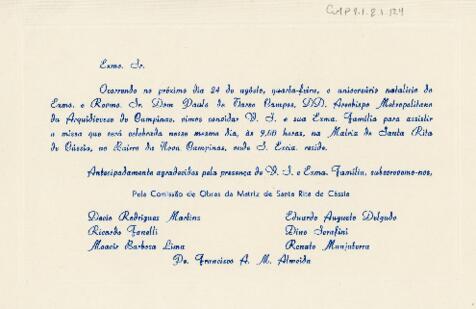 CMP 2.1.8.1.124
Exmo. Sr.
Ocorrendo no próximo dia 24 de agôsto, quarta-feira, o aniversário natalício do
Exmo. e Revmo. Sr. Dom Paulo de Tarso Campos, DD. Arcebispo Metropolitano
da Arquidiocese de Campinas, vimos convidar V. S. e sua Exma. Família para assistir
a missa que será celebrada nesse mesmo dia, às 9,00 horas, na Matriz de Santa Rita
de Cássia, no Bairro da Nova Campinas, onde S. Excia. reside.
Antecipadamente agradecidos pela presença de V. S. e Exma. Família, subscrevemo-nos,
Pela Comissão de Obras da Matriz de Santa Rita de Cássia
Dacio Rodrigues Martins
Eduardo Augusto Delgado
Ricardo Fanelli
Dino Serafini
Moacir Barbosa Lima
Renato Manjaterra
Pe. Francisco A. M. Almeida